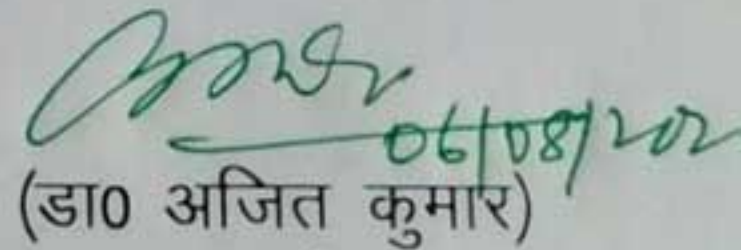 06/08/202
(डा0 अजित कुमार)